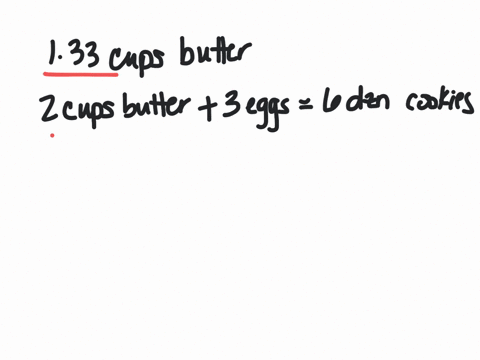 1.33 cups butter
2 cups butter + 3 eggs = 6 dzn cookies